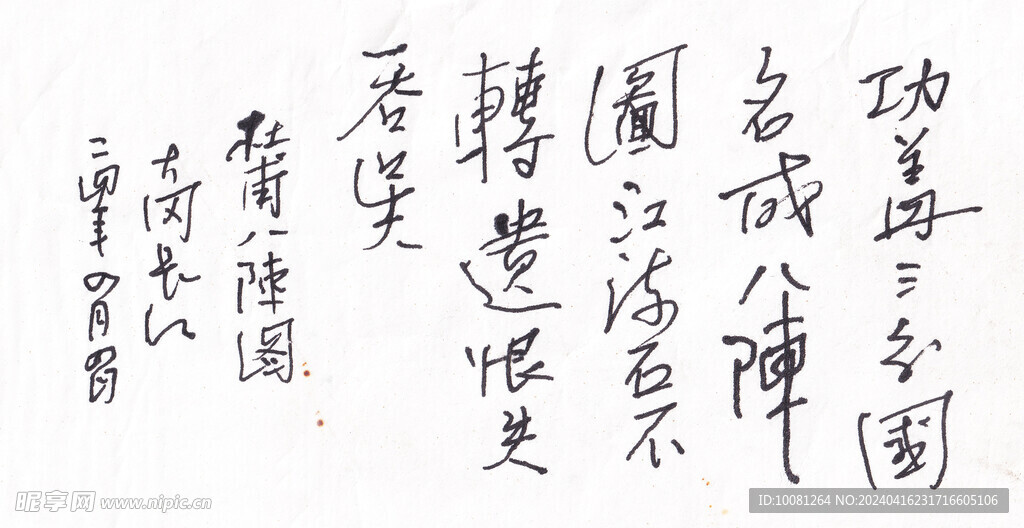 功蓋三分國
名成八陣
圖江流石不
轉遺恨失
吞吴
杜甫八陣圖
長江
二四年四月
昵享网 www.nipic.cn
ID:10081264 NO:20240416231716605106